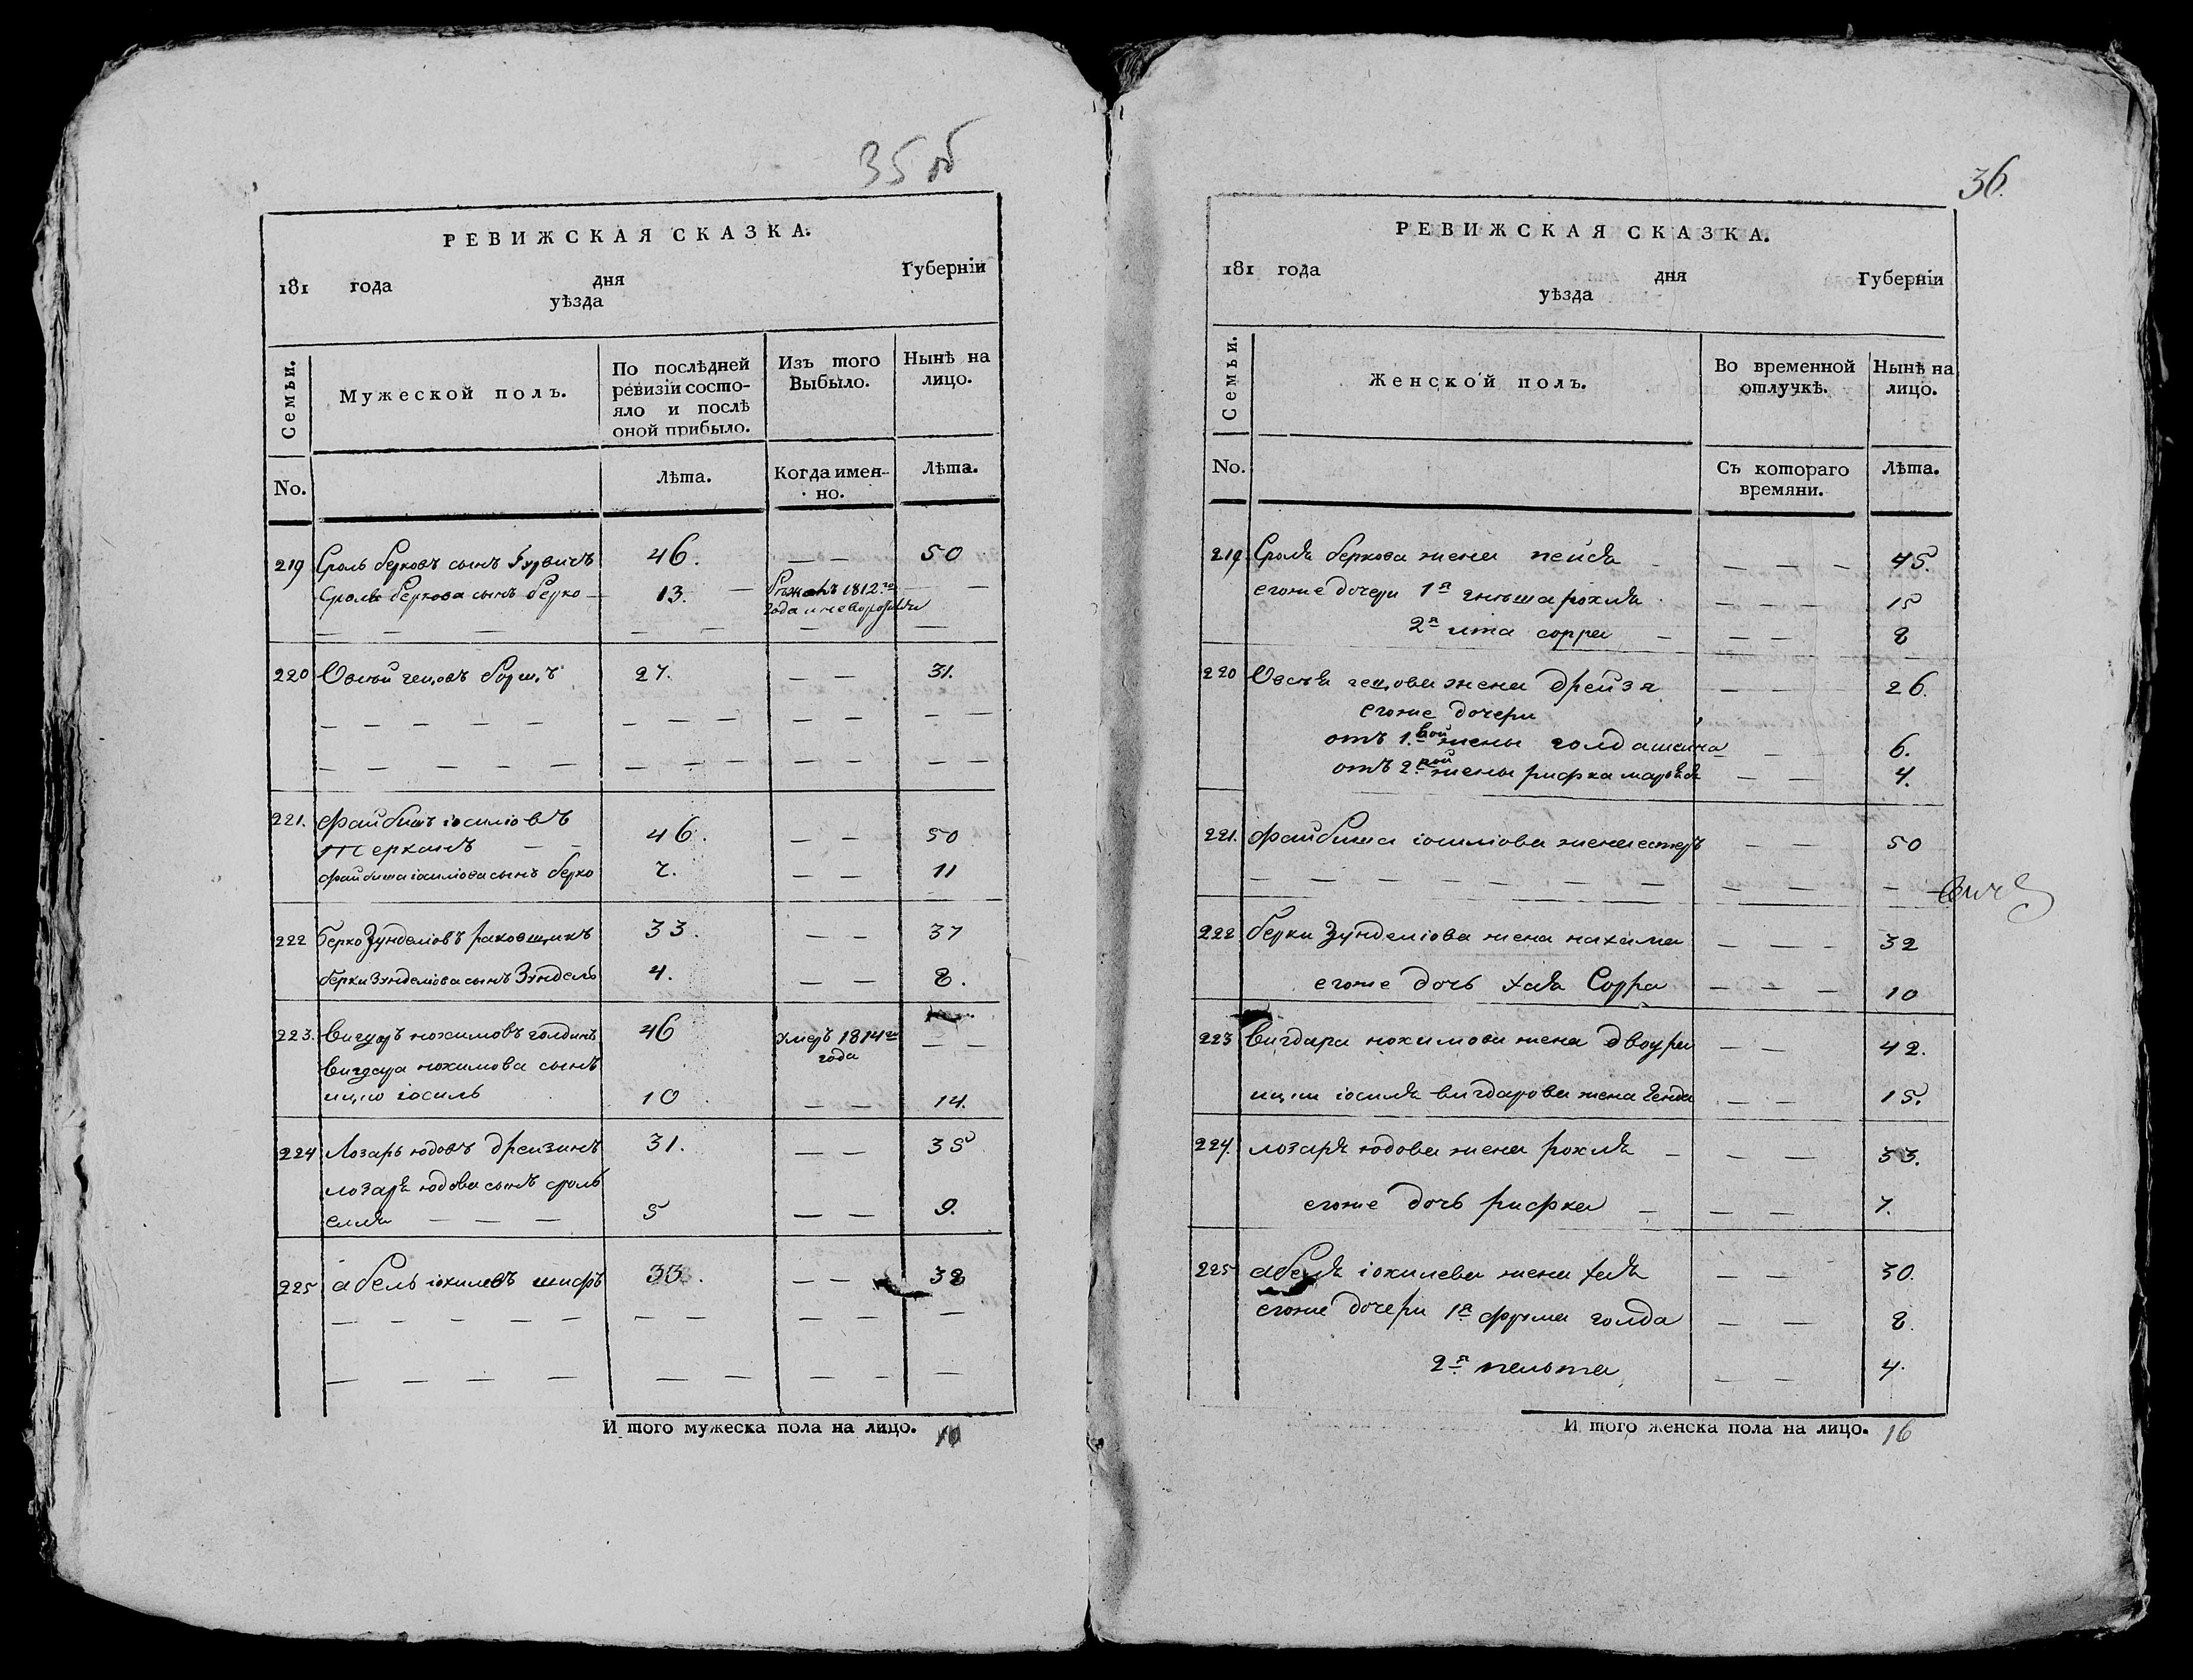 35 об
РЕВИЖСКАЯ СКАЗКА.
181 года дня Губерніи
уѣзда
Семьи.
Мужеской полъ.
По послѣдней ревизіи состо-
яло и послѣ
оной прибыло.
Изъ того
Выбыло.
Нынѣ на
лицо.
No.
Лѣта.
Когда имен-
но.
Лѣта.
219 Сроль берковъ сынъ Гурвичъ 46. — — 50
Сроля беркова сынъ берко — 13. — бѣжалъ 1812го —
года и невороти
220 Овсѣй гецовъ борщъ 27. — — 31.
221. Файбишъ іосиліовъ
46. — — 50
файбиша іосиліова сынъ берко 7. — — 11
222 Берко Зунделіовъ раковщикъ 33. — — 37
берки Зунделіова сынъ Зундель 4. — — 8.
223. Вигдоръ нохимовъ голдинъ 46 умеръ 1814го — —
года
Вигдора нохимова сынъ
ицко іосиль 10 — — 14.
224 Лозарь юдовъ дрейзинъ 31. — — 35
лозаря юдова сынъ сроль
емля — — — 5 — — 9.
225 абель іохилевъ шифъ 33. — — 38
И того мужеска пола на лицо. 10
36.
РЕВИЖСКАЯ СКАЗКА.
181 года дня Губерніи
уѣзда
Семьи.
Женской полъ.
Во временной
отлучкѣ.
Нынѣ на
лицо.
No.
Съ котораго
времяни.
Лѣта.
219. Сроля беркова жена пейся — — — 45.
егоже дочери 1я гнѣша рохля — — — 15
2я ита сорра — — — 8
220 Овсѣя гецова жена дрейзя — — — 26.
егоже дочери
отъ 1.вой жены голда — 6.
отъ 2.рой жены рифка — — 4.
221. файбиша іосиліова жена естеръ — — 50
вичъ
222 берки Зунделіова жена нахама — — — 32
егоже дочь хая Сорра — — — 10
223 Вигдора нохимова жена двоура — — 42.
ицки іосиля вигдорова жена Генда — — 15.
224. лозаря юдова жена рохля — — — 33.
егоже дочь рифка — — — 7.
225 абеля іохилева жена хая — — 30.
егоже дочери 1я фрума голда — — 8.
2я — — 4.
И того женска пола на лицо. 16